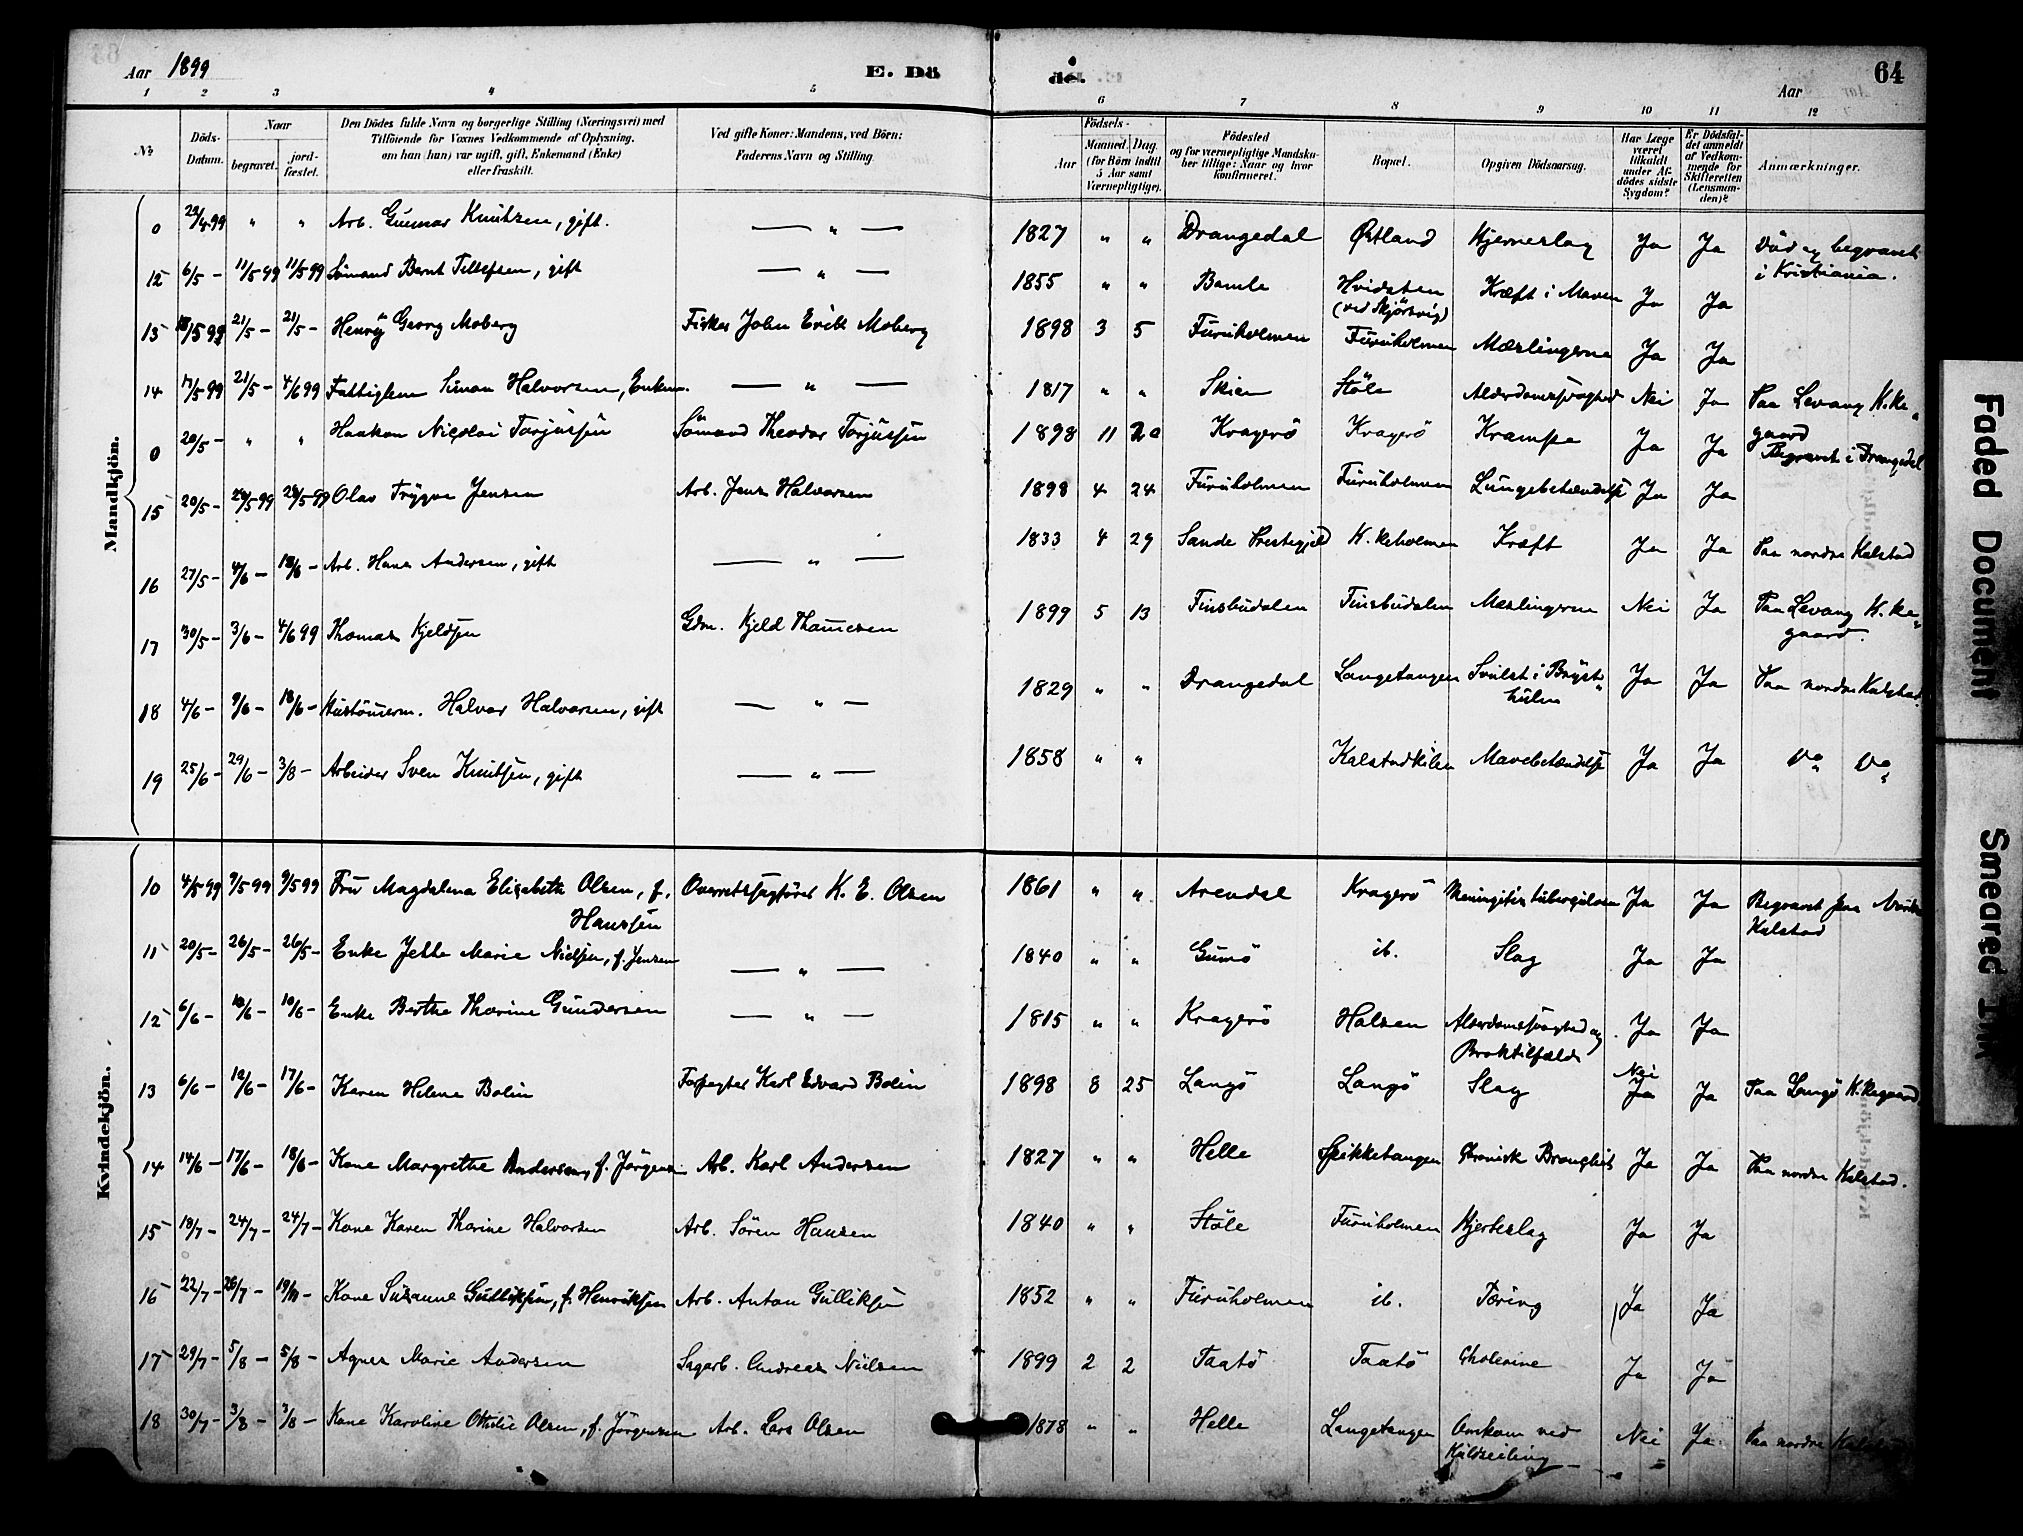 Aar 1899 E. Döde. Aar 64
1 2 3 4 5 6 7 8 9 10 11 12
No. Döds-Datum. Naar begravet. jord-fæstet. Den Dödes fulde Navn og borgerlige Stilling (Næringsvei) med Tilföiende for Voxnes Vedkommende af Oplysning, om han (hun) var ugift, gift, Enkemand (Enke) eller fraskilt. Ved gifte Koner: Mandens, ved Börn: Faderens Navn og Stilling Födsels- Aar Maaned. Dag. (for Börn indtil 5 Aar samt Værnepligtige). Födested og for værnepligtige Mandskaber tillige: Naar og hvor konfirmeret. Bopæl. Opgiven Dödsaarsag. Har Læge været tilkaldt under Afdödes sidste Sygdom? Er Dödsfaldet anmeldt af Vedkommende for Skifteretten (Lensmanden)? Anmærkninger.
Mandkjön.
0 29/4 99 " " Arb. Gunnar Knutsen, gift. — " — 1827 " " Drangedal Østland Hjerneslag Ja Ja Död og begravet
i Kristiania.
12 6/5 – 11/5 99 11/5 99 Sömand Bernt Tellefsen, gift — " — 1855 " " Bamle Hvidsten Kræft i Maven Ja Ja
(ved Skjörsvig)
13 18/5 99 21/5 – 21/5 – Henry Georg Moberg Fisker John Erik Moberg 1898 3 5 Furuholmen Furuholmen Mæslingerne Ja Ja
14 17/5 99 21/5 – 4/6 99 Fattiglem Simon Halvorsen, Enkem. — " — 1817 " " Skien Støle Alderdomssvaghed Nei Ja Paa Levang K.ke„
gaard
0 20/5 – " " Haakon Nicolai Torjussen Sömand Theodor Torjussen 1898 11 20 Kragerö Kragerö Krampe Ja Ja Begravet i Drangedal
15 20/5 – 28/5 99 28/5 99 Olav Trygve Jensen Arb. Jens Halvorsen 1898 4 24 Furuholmen Furuholmen Lungebetændelse Ja Ja
16 27/5 – 4/6 – 18/6 – Arb. Hans Andersen, gift — " — 1833 4 29 Sande Prestegjeld K.keholmen Kræft Ja Ja Paa nordre Kalstad
17 30/5 – 3/6 – 4/6 99 Thomas Kjeldsen Gdm. Kjeld Thomesen 1899 5 13 Finsbudalen Finsbudalen Mæslingerne Nei Ja Paa Levang K.ke„
gaard.
18 4/6 – 9/6 – 18/6 – Halvor Halvorsen, gift — " — 1829 " " Drangedal Langetangen Svulst i Bryst„ Ja Ja Paa nordre Kalstad.
hulen
19 25/6 – 29/6 – 3/8 – Arbeider Sven Knutsen, gift — " — 1858 " " Kalstadkilen Mavebetændelse Ja Ja Do Do
Kvindekjön.
10 4/5 99 9/5 99 9/5 99 Fru Magdalena Elisabeth Olsen, f. Overretssagförer K. E. Olsen 1861 " " Arendal Kragerö Meningitis tuberculosa Ja Ja Begravet paa Nordre
Hanssen Kalstad
11 20/5 – 26/5 – 26/5 – Enke Jette Marie Nielsen, f. Jensen — " — 1840 " " Gumö ib. Slag Ja Ja
12 6/6 – 10/6 – 10/6 – Enke Berthe Thorine Gundersen — " — 1815 " " Kragerö Halsen Alderdomssvaghed og Ja Ja
Broktilfælde
13 6/6 – 12/6 – 17/6 – Karen Helene Bolin Forpagter Karl Edvard Bolin 1898 8 25 Langö Langö Slag Nei Ja Ja Paa Langö K.kegaard
14 14/6 – 17/6 – 18/6 – Kone Margrethe Andersen, f. Jörgensen Arb. Karl Andersen 1827 " " Helle Spikketangen Chronisk Bronchit Ja Ja Paa nordre Kalstad.
15 18/7 – 24/7 – 24/7 – Kone Karen Thorine Halvorsen Arb. Sören Hansen 1840 " " Støle Furuholmen Hjerteslag Ja Ja
16 22/7 – 26/7 – 19/11 – Kone Susanne Gulliksen, f. Henriksen Arb. Anton Gulliksen 1852 " " Furuholmen ib. Tæring Ja Ja
17 29/7 – 5/8 – 5/8 – Agnes Marie Andersen Sagarb. Andreas Nielsen 1899 2 2 Taatö Taatö Cholerine Ja Ja
18 30/7 – 3/8 – 3/8 – Kone Karoline Othilie Olsen, f. Jörgensen Arb. Lars Olsen 1878 " " Helle Langetangen Omkom ved Nei Ja Paa nordre Kalstad
Faded Document
Smeared Ink